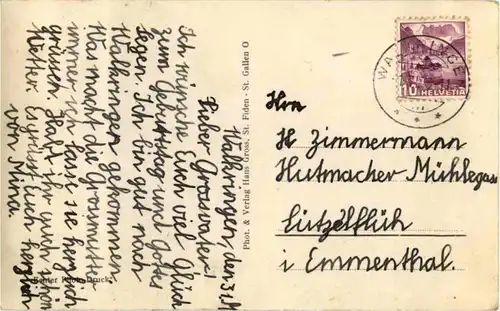 Walkringen, den 31.
Lieber Grossvater!
Ich wünsche Euch viel Glück
zum Geburtstag und Gottes
Segen. Ich bin gut nach
Walkringen gekommen.
Was macht die Grossmutter
immer, ich lasse sie herzlich
grüssen. Habt ihr auch schön
Wetter. Es grüsst Euch herzlich
von Nina.
Echter Photo-Druck
Phot. & Verlag Hans Gross, St. Fiden - St. Gallen O
10 HELVETIA
Hrn
H Zimmermann
Hutmacher Mühlegass
Lützelflüh
i Emmenthal.